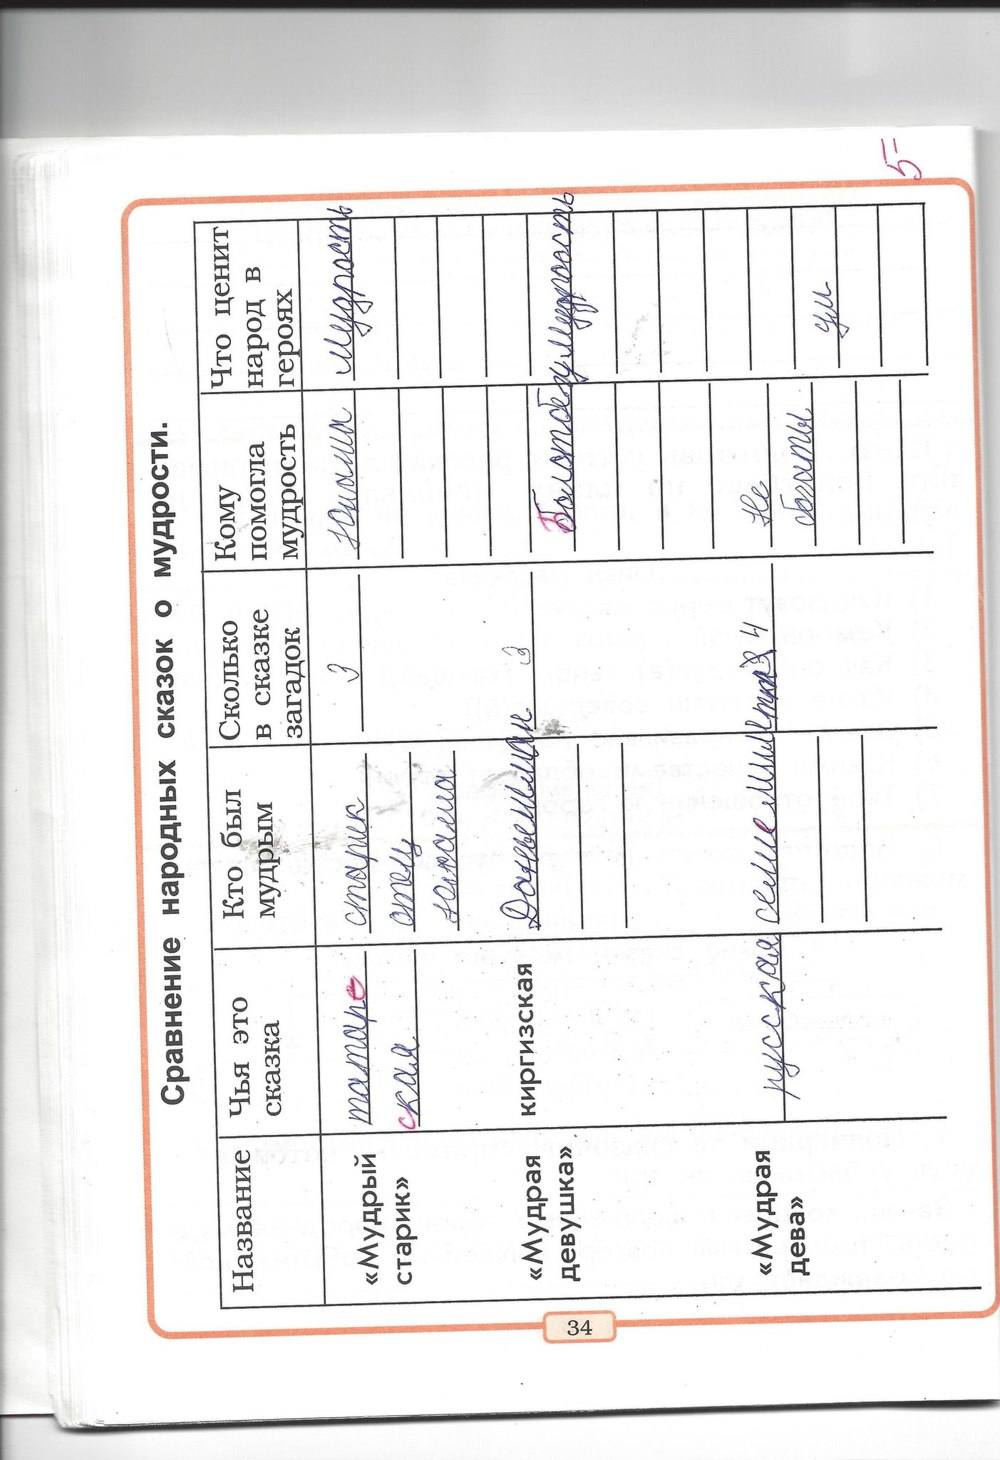 Сравнение народных сказок о мудрости.
Название
Чья это сказка
Кто был мудрым
Сколько в сказке загадок
Кому помогла мудрость
Что ценит народ в героях
«Мудрый старик»
татарс
ская
старик
отец
юноша
3
юноша
мудрость
«Мудрая девушка»
киргизская
Данышман
3
мудрость
«Мудрая дева»
русская
семилетка
4
Не
богаты
ум
34
5-